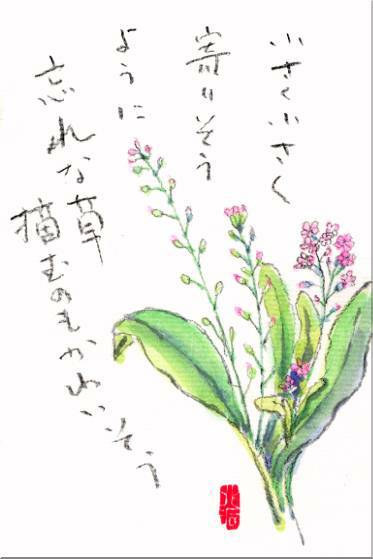 小さく小さく
寄りそう
ように
忘れな草
摘むのもかわいそう